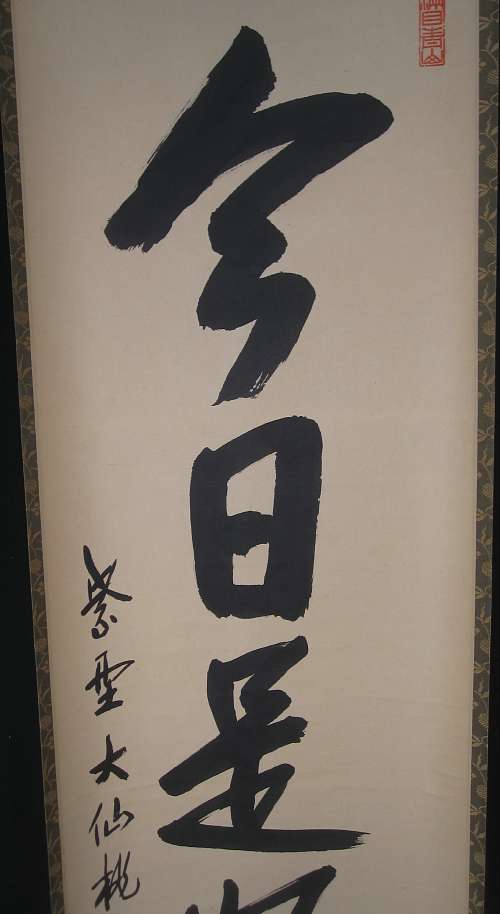 今日是
紫野大仙桃